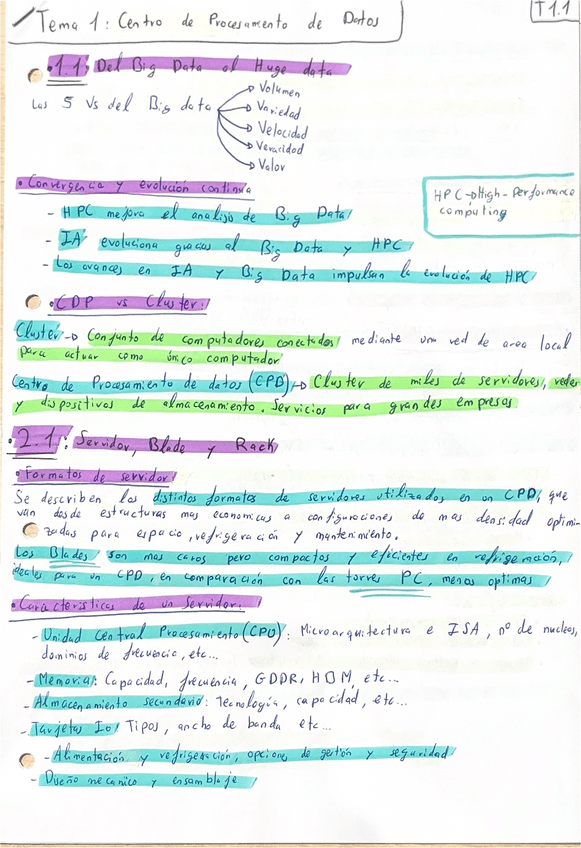 Tema 1: Centro de Procesamento de Datos
T 1.1
1.1 Del Big Data al Huge data
Las 5 Vs del Big data
Volumen
Variedad
Velocidad
Veracidad
Valor
• Convergencia y evolución continua
HPC → High-Performance
computing
- HPC mejora el analisis de Big Data
- IA evoluciona gracias al Big Data y HPC
- Los avances en IA y Big Data impulsan la evolución de HPC
• CDP vs Cluster:
Cluster → Conjunto de computadores conectados mediante una red de area local
para actuar como único computador
Centro de Procesamiento de datos (CPD) → Cluster de miles de servidores, redes
y dispositivos de almacenamiento. Servicios para grandes empresas
• 2.1: Servidor, Blade y Rack
• Formatos de servidor
Se describen los distintos formatos de servidores utilizados en un CPD, que
van desde estructuras mas economicas a configuraciones de mas densidad optimi-
zadas para espacio, refrigeración y mantenimiento.
Los Blades son mas caros pero compactos y eficientes en refrigeración,
ideales para un CPD, en comparación con las torres PC, menos optimas
• Caracteristicas de un Servidor:
- Unidad Central Procesamiento (CPU): Microarquitectura e ISA, nº de nucleos,
dominios de frecuencia, etc...
- Memoria: Capacidad, frecuencia, GDDR, HDM, etc...
- Almacenamiento secundario: Tecnología, capacidad, etc...
- Tarjetas Io: Tipos, ancho de banda etc...
- Alimentación y refrigeración, opciones de gestión y seguridad
- Diseño mecanico y ensamblaje